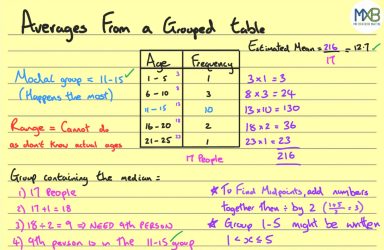 Averages From a Grouped table
MXB
Estimated Mean = 216/17 = 12.7 ✓
Age Frequency
1 - 5 3 1 3 x 1 = 3
6 - 10 8 3 8 x 3 = 24
11 - 15 13 10 13 x 10 = 130
16 - 20 18 2 18 x 2 = 36
21 - 25 23 1 23 x 1 = 23
17 People 216
Modal group = 11-15 ✓
(Happens the most)
Range = Cannot do
as don't know actual ages
Group containing the median =
1) 17 People
2) 17+1 = 18
3) 18 ÷ 2 = 9 ⇒ NEED 9TH PERSON
4) 9th person is in the 11-15 group ✓
★ To Find Midpoints, add numbers
together then ÷ by 2 (1+5/2 = 3)
★ Group 1-5 might be written
1 < x ≤ 5